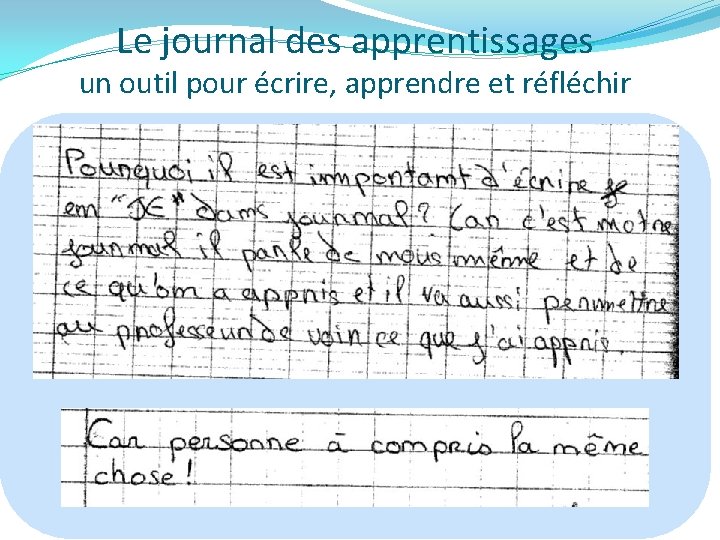 Le journal des apprentissages
un outil pour écrire, apprendre et réfléchir
Pourquoi il est important d'écrire
en "JE" dans journal? Car c'est notre
journal il parle de nous même et de
ce qu'on a appris et il va aussi permettre
au professeur de voir ce que j'ai appris.
Car personne à compris la même
chose !